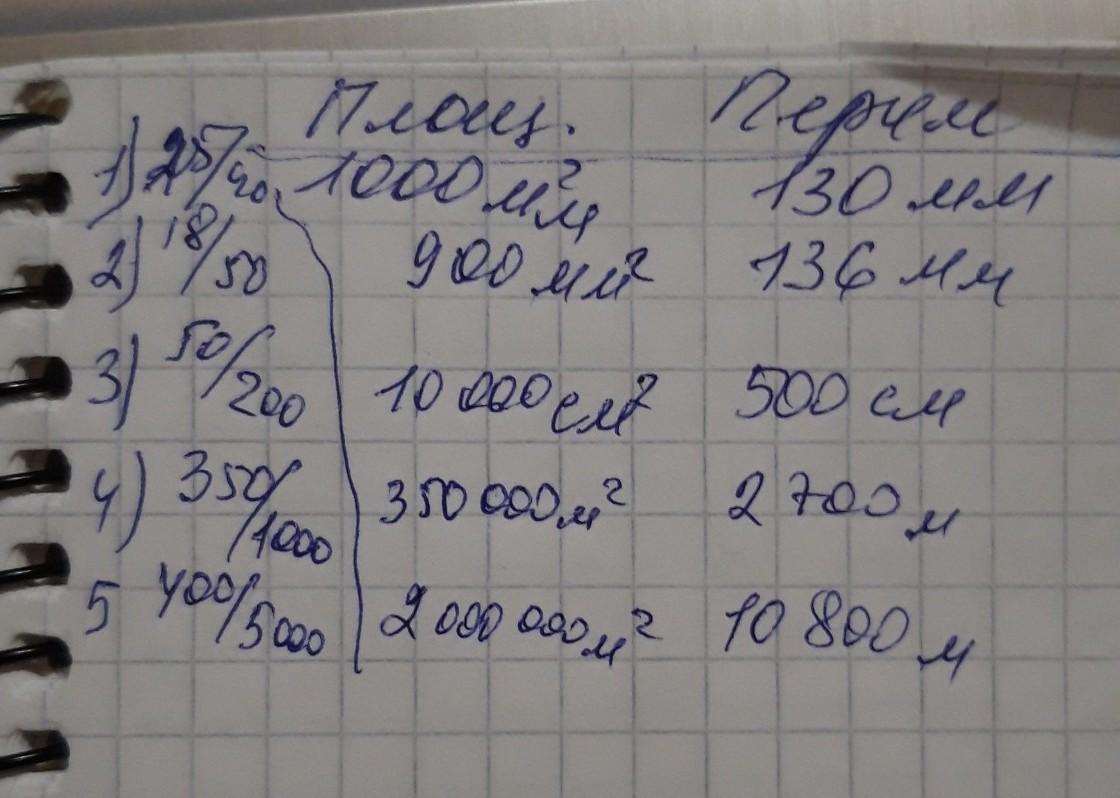 Площ. Перим
1) 25/40 1000 мм² 130 мм
2) 18/50 900 мм² 136 мм
3) 50/200 10 000 см² 500 см
4) 350/1000 350 000 м² 2 700 м
5 400/5000 2 000 000 м² 10 800 м